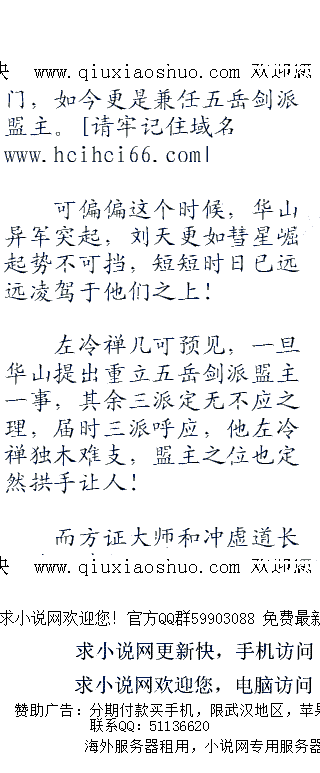 快 www.qiuxiaoshuo.com 欢迎您
门，如今更是兼任五岳剑派
盟主。[请牢记住域名
www.hcihci66.com|
可偏偏这个时候，华山
异军突起，刘天更如彗星崛
起势不可挡，短短时日已远
远凌驾于他们之上！
左冷禅几可预见，一旦
华山提出重立五岳剑派盟主
一事，其余三派定无不应之
理，届时三派呼应，他左冷
禅独木难支，盟主之位也定
然拱手让人！
而方证大师和冲虚道长
快 www.qiuxiaoshuo.com 欢迎您
求小说网欢迎您! 官方QQ群59903088 免费最新
求小说网更新快，手机访问
求小说网欢迎您，电脑访问
赞助广告：分期付款买手机，限武汉地区，苹果
联系QQ：51136620
海外服务器租用，小说网专用服务器